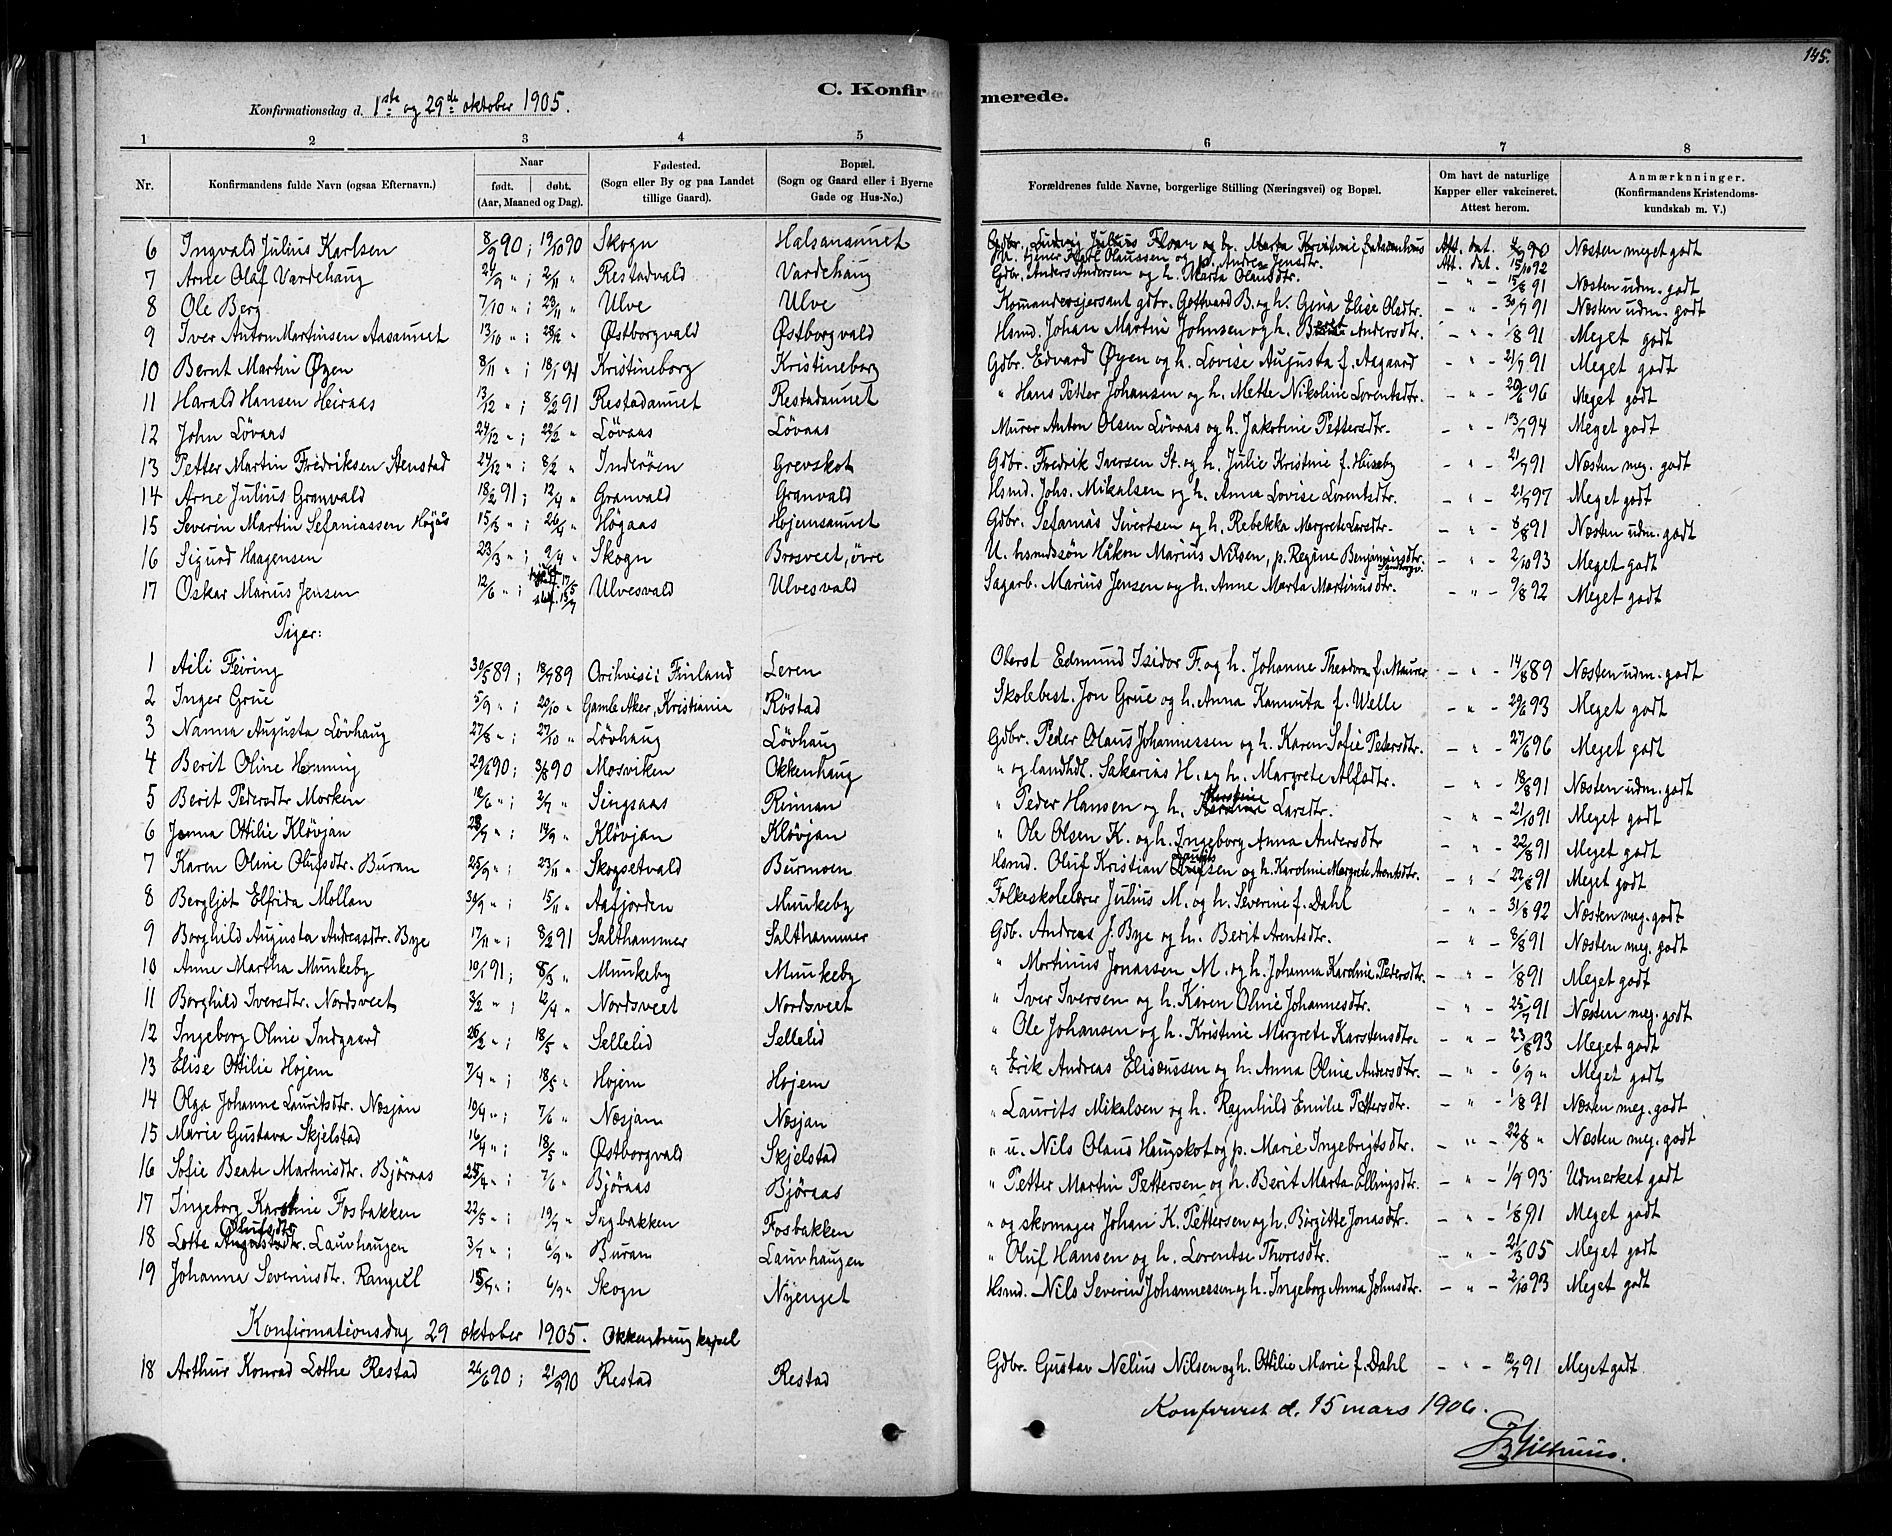 145.
C. Konfirmerede.
Konfirmationsdag d. 1ste og 29de oktober 1905.
1 2 3 4 5 6 7 8
Nr. Konfirmandens fulde Navn (ogsaa Efternavn). Naar født. døbt. (Aar, Maaned og Dag). Fødested. (Sogn eller By og paa Landet tillige Gaard). Bopæl. (Sogn og Gaard eller i Byerne Gade og Hus-No.) Forældrenes fulde Navne, borgerlige Stilling (Næringsvei) og Bopæl. Om havt de naturlige Kapper eller vakcineret. Attest herom. Anmærkninger. (Konfirmandens Kristendomskundskab m. V.)
6 Ingvald Julius Karlsen 8/9 90; 19/10 90 Skogn Halsanaunet Gdbr. Ludvig Julius Floan og h. Marta Kristine Att. dat. Næsten meget godt
Karl Olaussen og p. Andrea Jensdtr. Att. dat. 15/10 92
7 Arne Olaf Vardehaug 21/9 " ; 2/11 " Restadvald Vardehaug Gdbr. Anders Andersen og h. Marta Olausdtr. - " - 15/8 91 Næsten udm. godt
8 Ole Berg 7/10 " ; 23/11 " Ulve Ulve Komandersjersant gdbr. Gottvard B. og h. Gina Elise Olsdtr. - " - 30/7 91 Næsten udm. godt
9 Iver Anton Martinsen Aasaunet 13/10 " ; 28/12 " Østborgvald Østborgvald Hsmd. Johan Martin Johnsen og h. Andersdtr. - " - 1/8 91 Meget godt
10 Bernt Martin Øyen 8/11 " ; 18/1 91 Kristineborg Kristineborg Gdbr. Edvard Øyen og h. Lovise Augusta f. Aagaard - " - 21/7 91 Meget godt
11 Harald Hansen Heiraas 13/12 " ; 8/2 91 Restadaunet Restadaunet " Hans Petter Johansen og h. Mette Nikoline Lorentsdtr. - " - 20/6 96 Meget godt
12 John Løvaas 24/12 " ; 22/2 " Løvaas Løvaas Murer Anton Olsen Løvaas og h. Jakobine Pettersdtr. - " - 13/7 94 Meget godt
13 Petter Martin Fredriksen Stenstad 24/12 " ; 8/2 " Inderøen Grevskot Gdbr. Fredrik Iversen St. og h. Julie Kristine f. Huseby - " - 21/7 91 Næsten meg. godt
14 Arne Julius Granvald 18/2 91; 12/4 " Granvald Granvald Hsmd. Johs. Mikalsen og h. Anna Lovise Lorentsdtr. - " - 21/7 97 Meget godt
15 Severin Martin Sefaniassen Høgås 15/3 " ; 26/4 " Høgaas Hojemsaunet Gdbr. Sefanias Sivertsen og h. Rebekka Margrete Larsdtr. - " - 8/8 91 Næsten udm. godt
16 Sigurd Haagensen 23/3 " ; 9/4 " Skogn Brasveet, øvre U. hsmdssøn Håkon Marius Nilsen, p. Regine Benjaminsdtr. - " - 2/10 93 Meget godt
17 Oskar Marius Jensen 12/6 " ; 17/5 Ulvesvald Ulvesvald Sagarb. Marius Jensen og h. Anne Marta Martinusdtr. - " - 9/8 92 Meget godt
Piger:
1 Aili Feiring 30/5 89; 18/7 89 Orihvisi i Finland Leren Oberst Edmund Isidor F. og h. Johanne Theodora f. Maurer - " - 14/8 89 Næsten udm. godt
2 Inger Grue 5/9 " ; 20/10 " Gamle Aker, Kristiania Røstad Skolebest. Jon Grue og h. Anna Kanuuta f. Welle - " - 29/6 93 Meget godt
3 Nanna Augusta Løvhaug 27/8 " ; 27/10 " Løvhaug Løvhaug Gdbr. Peder Olaus Johannessen og h. Karen Sofie Petersdtr. - " - 27/6 96 Meget godt
4 Berit Oline Henning 29/6 90; 3/8 90 Mosviken Okkenhaug " og landhdl. Sakarias H. og h. Margrete Alfsdtr. - " - 18/8 91 Næsten udm. godt
5 Berit Pedersdtr Morken 12/6 " ; 2/7 " Singsaas Reiman " Peder Hansen og h. Kerstine Larsdtr. - " - 21/10 91 Meget godt
6 Janna Ottilie Kløvjan 23/7 " ; 14/9 " Kløvjan Kløvjan " Ole Olsen K. og h. Ingeborg Anna Andersdtr - " - 22/8 91 Meget godt
7 Karen Oline Olufsdtr. Buran 25/9 " ; 23/11 " Skogsetvald Burmoen Hsmd. Oluf Kristian og h. Karoline Margrete Arntsdtr. - " - 22/8 91 Meget godt
8 Bergljot Elfrida Mollan 30/9 " ; 15/11 " Aafjorden Munkeby Folkeskolelærer Julius M. og h. Severine f. Dahl - " - 31/8 92 Næsten meg. godt
9 Borghild Augusta Andreasdtr. Bye 17/11 " ; 8/2 91 Salthammer Salthammer Gdb. Andreas J. Bye og h. Berit Arntsdtr. - " - 8/8 91 Næsten meg. godt
10 Anne Martha Munkeby 10/1 91; 8/3 " Munkeby Munkeby " Martinus Jonassen M. og h. Johanna Karoline Petersdtr. - " - 1/8 91 Meget godt
11 Borghild Iversdtr. Nordsveet 3/2 " ; 12/4 " Nordsveet Nordsveet " Iver Iversen og h. Karen Oline Johannesdtr. - " - 25/7 91 Næsten meg. godt
12 Ingeborg Oline Indgaard 26/2 " ; 18/5 " Sellelid Sellelid " Ole Johansen og h. Kristine Margrete Karstensdtr. - " - 23/8 93 Meget godt
13 Elise Ottilie Hojem 7/4 " ; 18/5 " Hojem Hojem " Erik Andreas Elisæussen og h. Anna Oline Andersdtr. - " - 6/9 " Meget godt
14 Olga Johanne Lauritsdtr. Næsjan 10/4 " ; 7/6 " Næsjan Næsjan " Laurits Mikalsen og h. Ragnhild Emilie Pettersdtr. - " - 1/8 91 Næsten meg. godt
15 Marie Gustava Skjelstad 16/4 " ; 18/5 " Østborgvald Skjelstad " u. Nils Olaus Haugskot og p. Marie Ingebrigtsdtr. - " - 22/8 " Næsten meg. godt
16 Sofie Beate Martinsdtr. Bjøraas 25/4 " ; 7/6 " Bjøraas Bjøraas " Petter Martin Pettersen og h. Berit Marta Ellingsdtr. - " - 1/9 93 Udmerket godt
17 Ingeborg Karoline Fosbakken 22/5 " ; 19/7 " Sagbakken Fosbakken " og skomager Johan K. Pettersen og h. Birgitte Jonasdtr. - " - 1/8 91 Meget godt
18 Lotte Olufsdtr. Lauvhaugen 3/7 " ; 6/9 " Buran Lauvhaugen " Oluf Hansen og h. Lorentse Thoresdtr. - " - 21/3 05 Meget godt
19 Johanna Severinsdtr. Rangul 15/7 " ; 6/9 " Skogn Nyenget Hsmd. Nils Severin Johannessen og h. Ingeborg Anna Johnsdtr. - " - 2/10 93 Meget godt
Konfirmationsdag 29 oktober 1905. Okkenhaug kapel
18 Arthur Konrad Lothe Restad 26/6 90; 21/9 90 Restad Restad Gdbr. Gustav Nelius Nilsen og h. Ottilie Marie f. Dahl - " - 12/7 91 Meget godt
Konfereret d. 15 mars 1906.